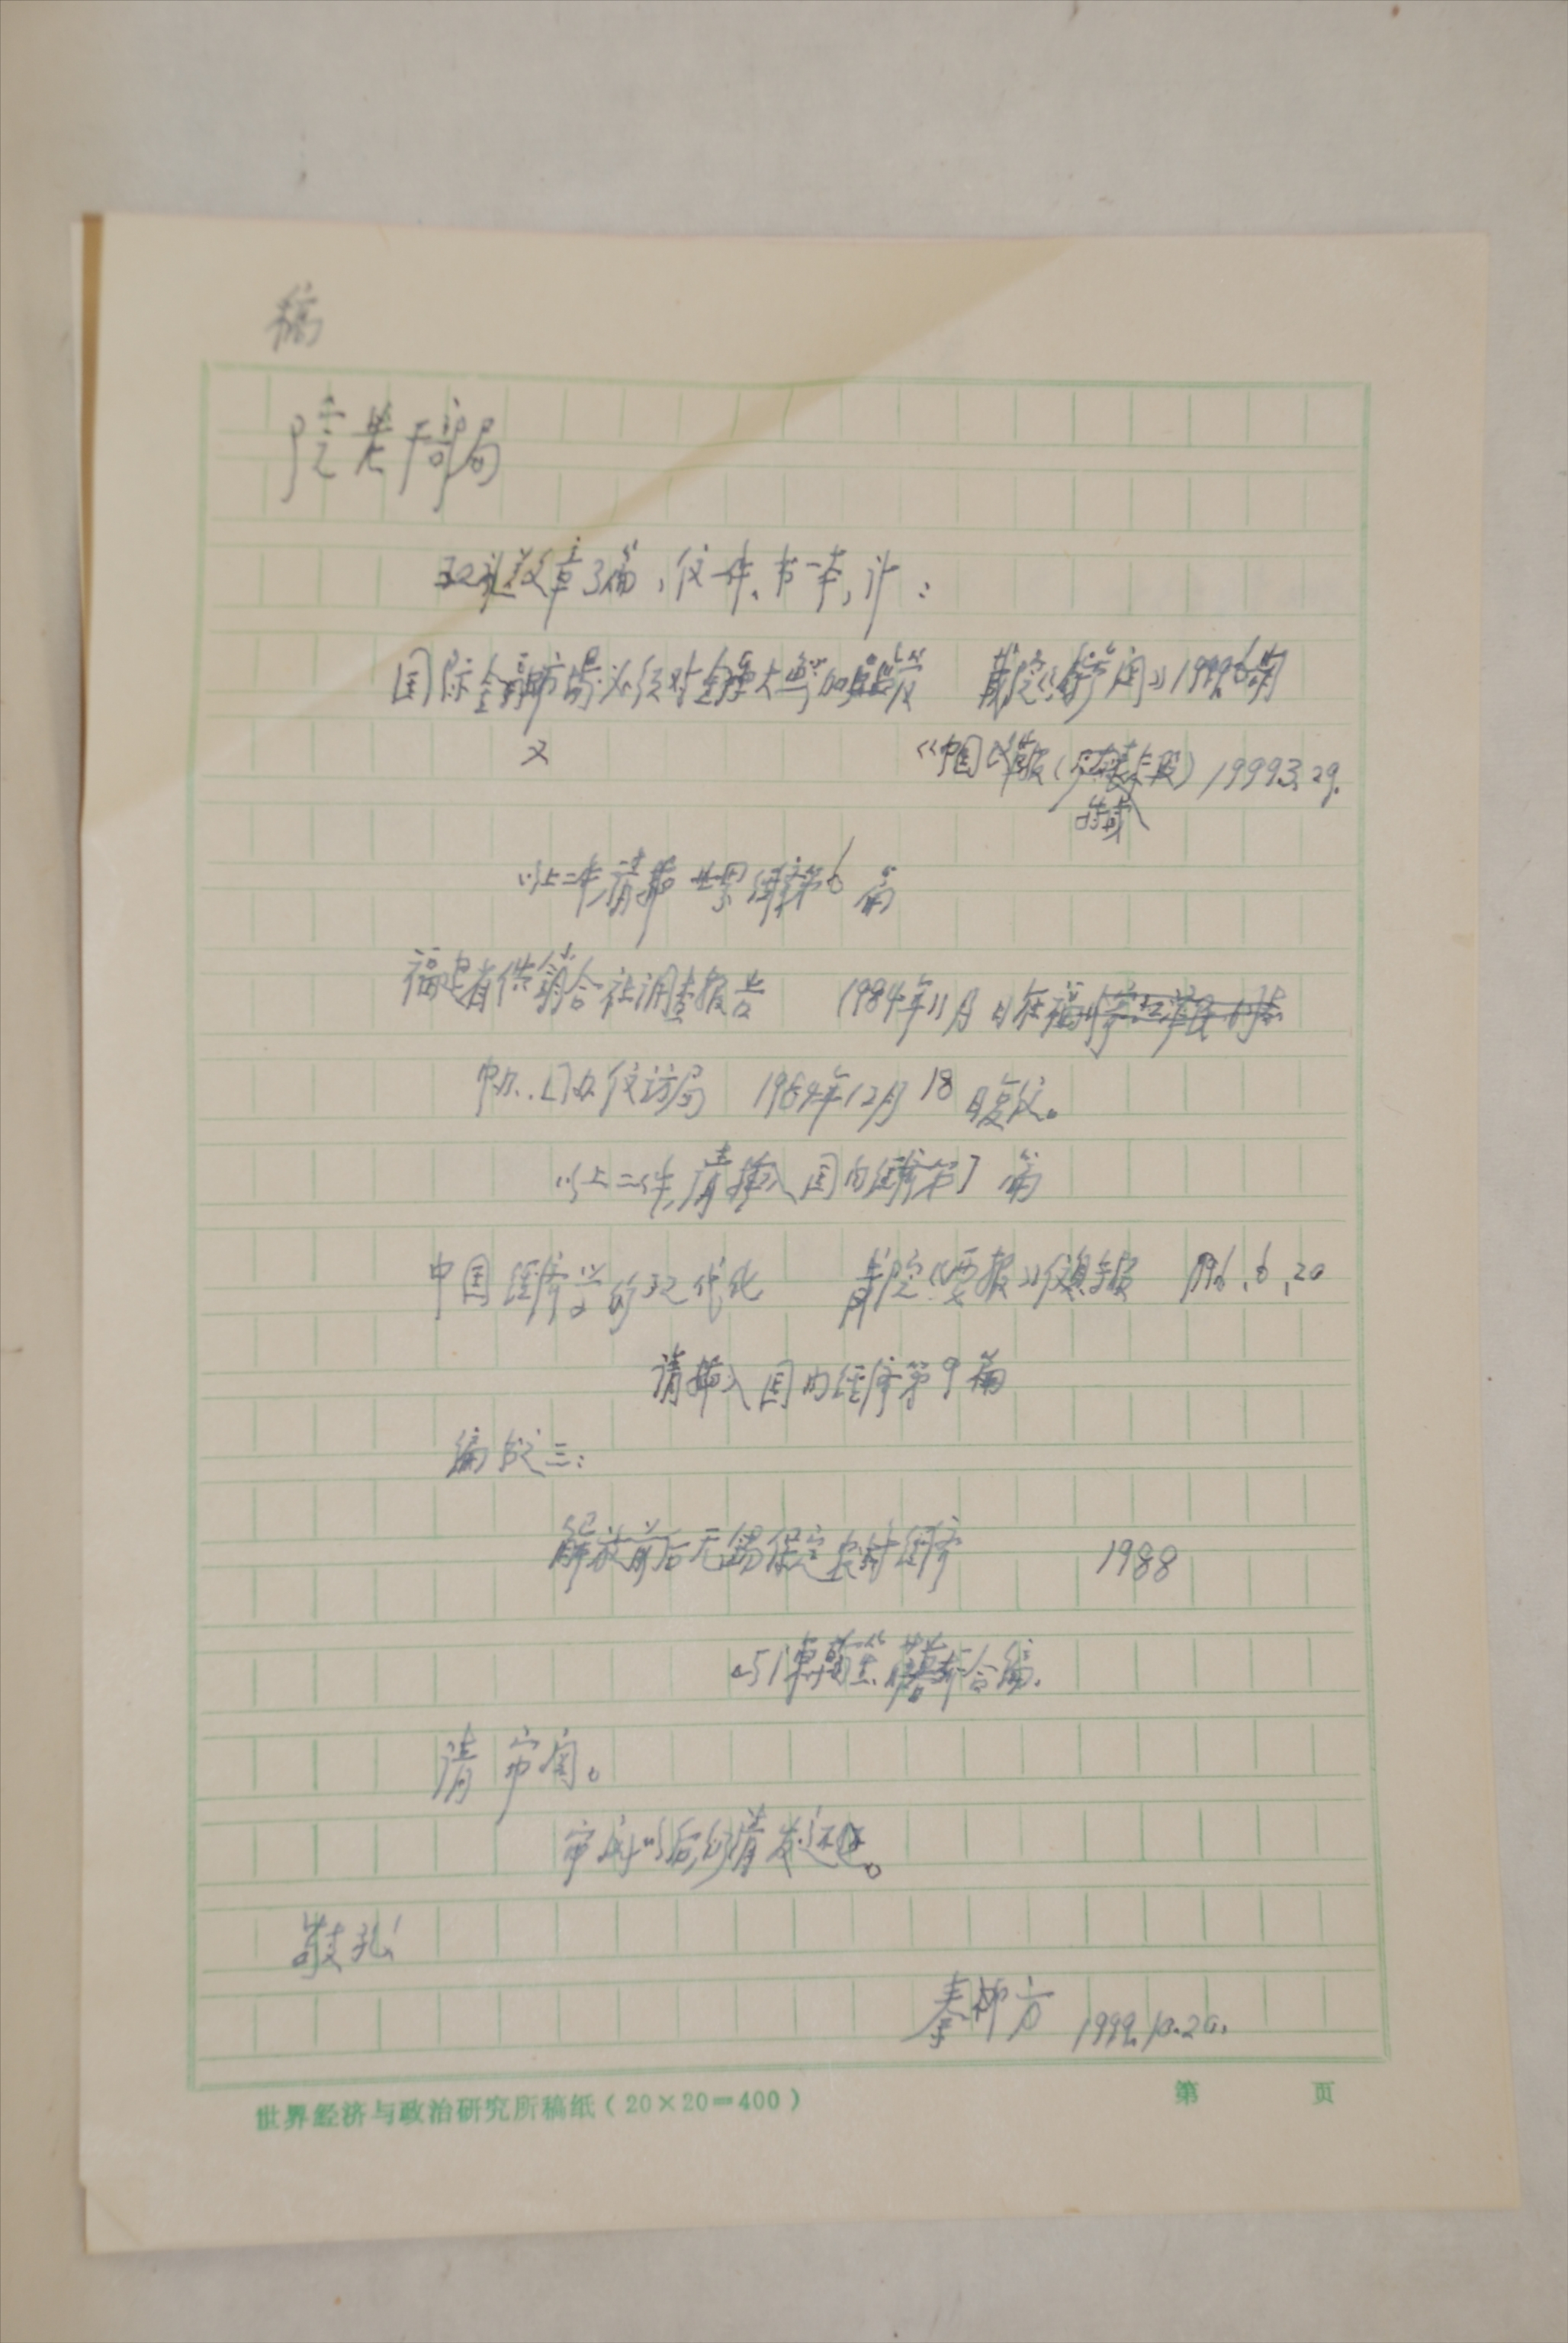 稿
院老干部局
现送文章3篇,信一件、书一本,计:
国际金融市场必须对金融大鳄加监管 我院《要闻》1999.6期
又 《中国改革报》1999.3.29.
以上二件请 世界经济第6篇
福建省供销合社调查报告 1984年11月 日在福州
中办、国办信访局 1984年12月18日复信。
以上二件,请插入国内经济第7篇
中国经济学的现代化 我院《要报》领导报 1996.6.20
请插入国内经济第9篇
编书之三:
解放前后无锡保定农村经济 1988
与 合编.
请审阅。
审阅以后,仍请发还。
敬礼!
秦柳方 1999.10.20.
世界经济与政治研究所稿纸(20×20=400) 第 页